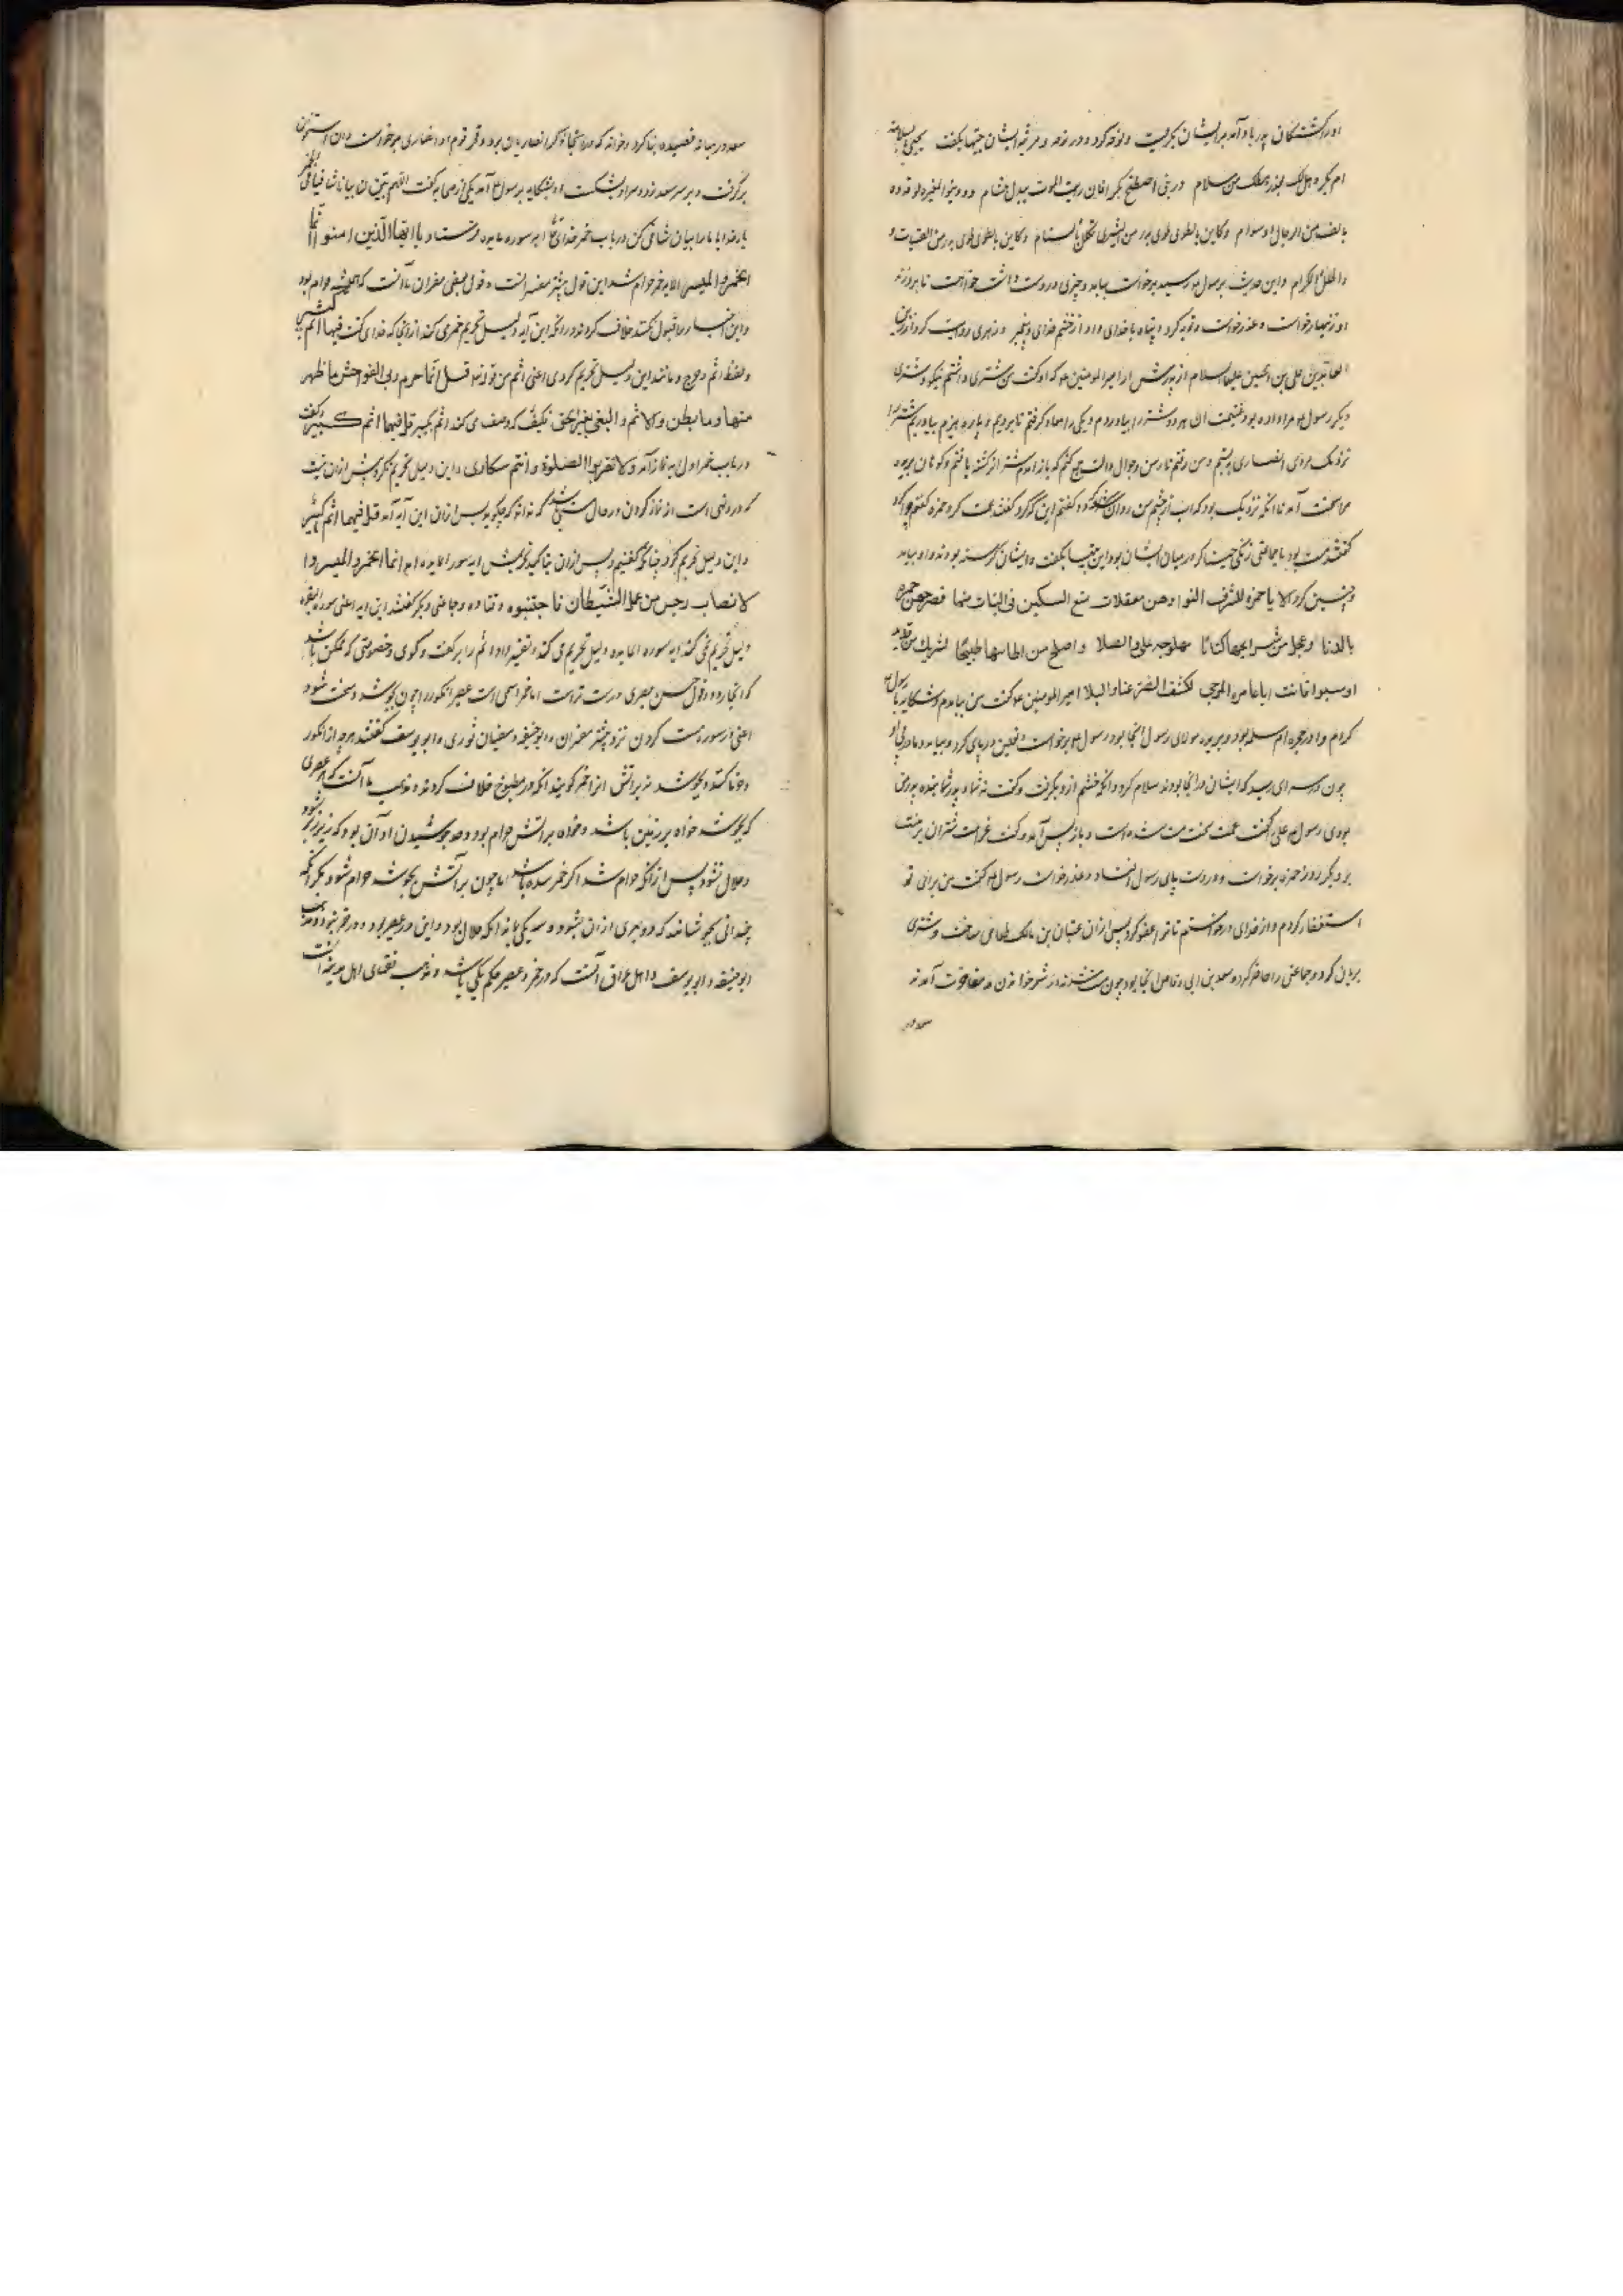 او را کشتکان بدر یاد آمد بر ایشان بگریست و نوحه کرد و در نوحه و مرثیه ایشان بیتها بکفت
ام بکر و هل لک من سلام ذرینی اصطبح بکر افان
بالف من الرجال او سوام و کاین بالطوی طوی بدر من الشیزی تکلل بالسنام و کاین بالطوی طوی بدر من الفتیات و
و الحلل الکرام و این حدیث برسول رسید برخواست بیامد و چیزی در دست داشت خواست تا برو زند
او زنهار خواست و عذر خواست و توبه کرد و پناه با خدای داد از خشم خدای و پیغمبر و زهری روایت کرد از زین
العابدین علی بن الحسین علیهما السلام از پدرش از امیر المومنین که او کفت من شتری داشتم نیکو و شتری
دیکر رسول مرا داده بود غنیمت آن هر دو شتر را بیاوردم و یکی را همراه کرفتم تا برویم و پاره هیزم بیاوریم
نزدیک سرای انصاری ببستم و من رفتم تا رسن و جوال و آلت جمع کنم که باز آمدم شتر انرا کشته یافتم و کوهان بریده
مرا سخت آمد تا انکه نزدیک بود که آب از چشم من روان شود و کفتم این که کرد کفتند عمت کرد حمزه کفتم چرا کرد
کفتند مست بود با جماعتی زنکی خنیاکر در میان ایشان بود این بیتها بکفت و ایشان کرسنه بودند و او بیامد
و چنین کرد الا یا حمزه للشرف النواء و هن معقلات ضع السکین فی اللبات منها فضرجهن حمزه
بالدما و عجل من شرایحها کبابا ملهوجه علی وهج الصلا و اصلح من اطایبها طبیخا لشربک من
امیر المومنین کفت من بیامدم و شکایه با رسول
کردم و او در حجره ام سلمه بود و زید مولای رسول آنجا بود رسول برخواست و نعلین در پای کرد و بیامد و ما در پی او
چون در سرای رسید که ایشان در آنجا بودند سلام کرد و آنکه خشم از و بکرفت و کفت نه شما و پدر شما بنده پدر من
بودی رسول علی را کفت عمت سخت مست شده است و باز پس آمد و کفت غرامت شتران بر منست
بر دیکر روز حمزه برخواست و در دست و پای رسول افتاد و عذر خواست رسول کفت من برای تو
استغفار کردم و از خدای درخواستم تا ترا عفو کرد پس از آن عتبان بن مالک طعامی ساخت و شتری
بریان کرد و جماعتی را حاضر کرد و سعد بن ابی وقاص آنجا بود چون مست شدند در شعر خواندن و مفاخرت آمدند
سعد در
سعد در میانه قصیده بنا کرد و خواند که در آنجا ذکر انصاریان بود و فخر قوم او انصاری برخواست و آن استخوان
برکرفت و بر سر سعد زد و سر او بشکست او بشکایه بر رسول آمد یکی از صحابه کفت اللهم بین لنا بیانا شافیا فی الخمر
بار خدایا ما را بیان شافی کن در باب خمر خدای تعالی ایه سوره مایده فرستاد یا ایها الذین امنوا انما
الخمر و المیسر الایه خمر حرام شد این قول بیشتر مفسرانست و قول بعضی مفسران ما آنست که همیشه حرام بود
و این اخبار را قبول نکنند خلاف کردند در انکه این آیه دلیل تحریم خمر می کند از آنجا که خدای کفت فیهما اثم کبیر
و لفظ اثم و حرج و مانند این دلیل تحریم کردی اعنی اثم من قوله قل انما حرم ربی الفواحش ما ظهر
منها و ما بطن و الاثم و البغی بغیر الحق فکیف که وصف می کند اثم بکبیر قل فیهما اثم کبیر و کفت
در باب خمر اول به نماز آمد و لا تقربوا الصلوة و انتم سکاری و این دلیل تحریم نکرد بیش از آن نیست
که در و نهی است از نماز کردن در حال مستی که نداند که چکوید پس از آن این آیه آمد قل فیهما اثم کبیر
و این دلیل تحریم کرد چنانکه کفتیم و پس از آن بتاکید تحریمش ایه سوره المایده آمد انما الخمر و المیسر و ا
لانصاب رجس من عمل الشیطان فاجتنبوه و قتاده و جماعتی دیکر کفتند این ایه اعنی سوره البقره
دلیل تحریم نمی کند ایه سوره المایده دلیل تحریم می کند و تفسیر داد اثم را بر کفت و کوی و خصومتی که ممکن باشد
که آنجا رود و قول حسن بصری درست تر است اما خمر اسمی است عصیر انکور را چون بجوشد و سخت شود
اعنی از سوره مست کردن نزد بیشتر مفسران و ابو حنیفه و سفیان ثوری و ابو یوسف کفتند هرچه از انکور
و خرما کنند و بجوشد نه بر آتش انرا خمر کویند آنکه در مطبوخ خلاف کردند و مذهب ما آنست که هر عصیری
که بجوشد خواه بر زمین باشد و خواه بر آتش حرام بود و حد جوشیدن او آن بود که زیر زبر شود
و حلال نشود پس از آنکه حرام شد اکر خمر شده باشد اما چون بر آتش بجوشد حرام شود مکر آنکه
چندانی بجوشانند که دو بهری از آن بشود و سه یکی بماند آنکه حلال بود و این در عصیر بود و در خمر نبود و مذهب
ابو حنیفه و ابو یوسف و اهل عراق آنست که در خمر و عصیر حکم یکی باشد و مذهب فقهای اهل مدینه آنست